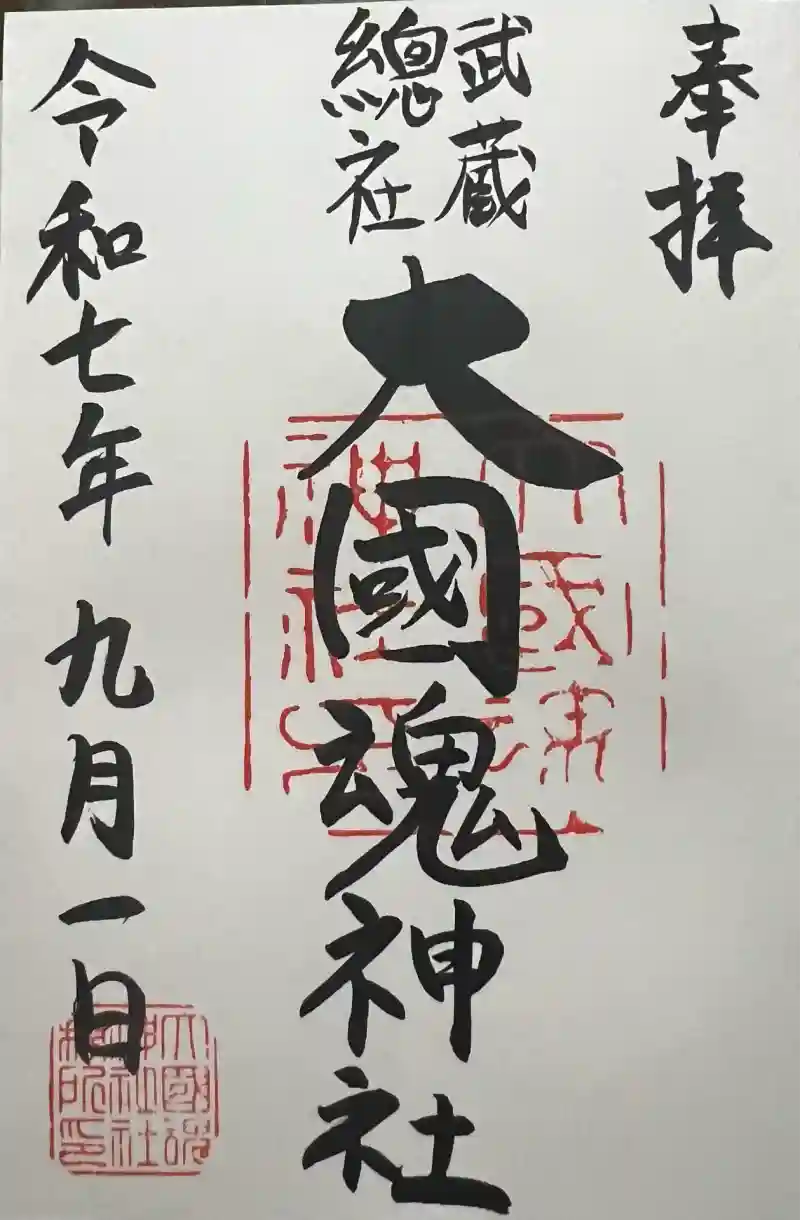 奉拝
武蔵
總社
大國魂神社
令和七年 九月一日
大國魂
神社社
務所印